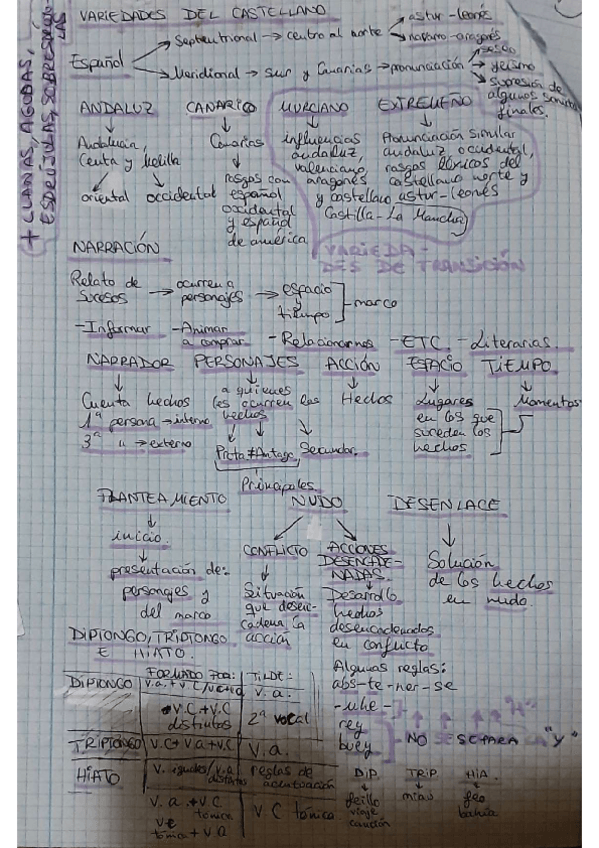 + LLANAS, AGUDAS,
ESDRÚJULAS, SOBRESDRÚJU
LAS
VARIEDADES DEL CASTELLANO
Español
Septentrional → centro al norte → astur-leonés
→ navarro-aragonés
Meridional → sur y Canarias → pronunciación → seseo
→ yeísmo
→ supresión de
algunos
finales.
ANDALUZ CANARIO MURCIANO EXTREMEÑO
Andalucía,
Ceuta y Melilla
oriental occidental
Canarias
rasgos con
español
occidental
y español
de américa
influencias
andaluz,
valenciano,
aragonés
y castellano
Pronunciación similar
andaluz occidental,
rasgos léxicos del
castellano norte y
astur-leonés
Castilla-La Mancha
VARIEDA-
DES DE TRANSICIÓN
NARRACIÓN
Relato de
sucesos → ocurren a
personajes → espacio
y
tiempo - marco
-Informar -Animar
a comprar -Relacionarnos -ETC -Literarias
NARRADOR PERSONAJES ACCIÓN ESPACIO TIEMPO
Cuenta hechos
1ª persona → interno
3ª " → externo
a quienes
les ocurren los
hechos
Prota ≠ Antago, Secundar.
Principales
Hechos
Lugares
en los que
suceden los
hechos
Momentos
PLANTEAMIENTO NUDO DESENLACE
inicio.
presentación de:
personajes y
del marco
CONFLICTO
Situación
que desen-
cadena la
acción
ACCIONES
DESENCADE-
NADAS.
Desarrollo
hechos
desencadenados
en conflicto
Solución
de los hechos
en nudo.
DIPTONGO, TRIPTONGO
E HIATO.
FORMADO POR: TILDE:
DIPTONGO v.a. + v.c/v.c+v.a v.a.
v.c. + v.c
distintos 2ª vocal
TRIPTONGO v.c + v.a + v.c v.a.
HIATO v. iguales/v.a
distintas reglas de
acentuación
v.a. + v.c
tónica
v.c
tónica + v.a v.c tónica
Algunas reglas:
abs-te-ner-se
rey
buey
"H"
- NO SE SEPARA LA "Y"
DIP TRIP HIA.
viaje
canción
miau
feo
bahía